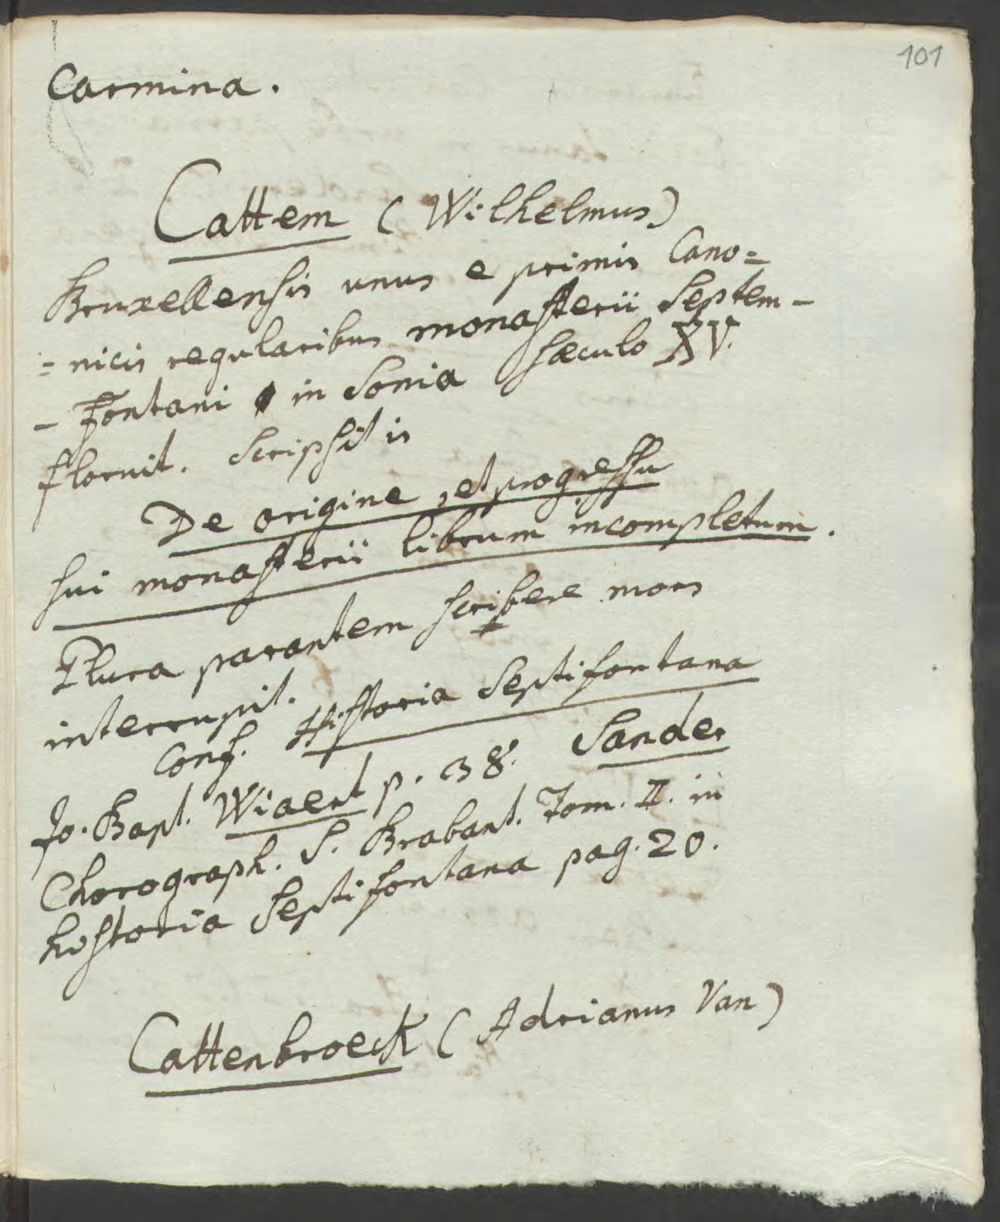 101
Carmina.
Cattem (Wilhelmus)
Bruxellensis unus e primis Cano=
= nicis regularibus monasterii Septem-
- Fontani in Sonia sæculo XV.
floruit. Scripsit is
De origine, et progressu
sui monasterii librum incompletum.
Plura parantem scribere mors
interrupit.
Conf. Historia Septifontana
Jo. Bapt. Wiaert p. 38. Sander
Chorograph. S. Brabant. Tom. II. in
historia Septifontana pag. 20.
Cattenbroeck (Adrianus Van)